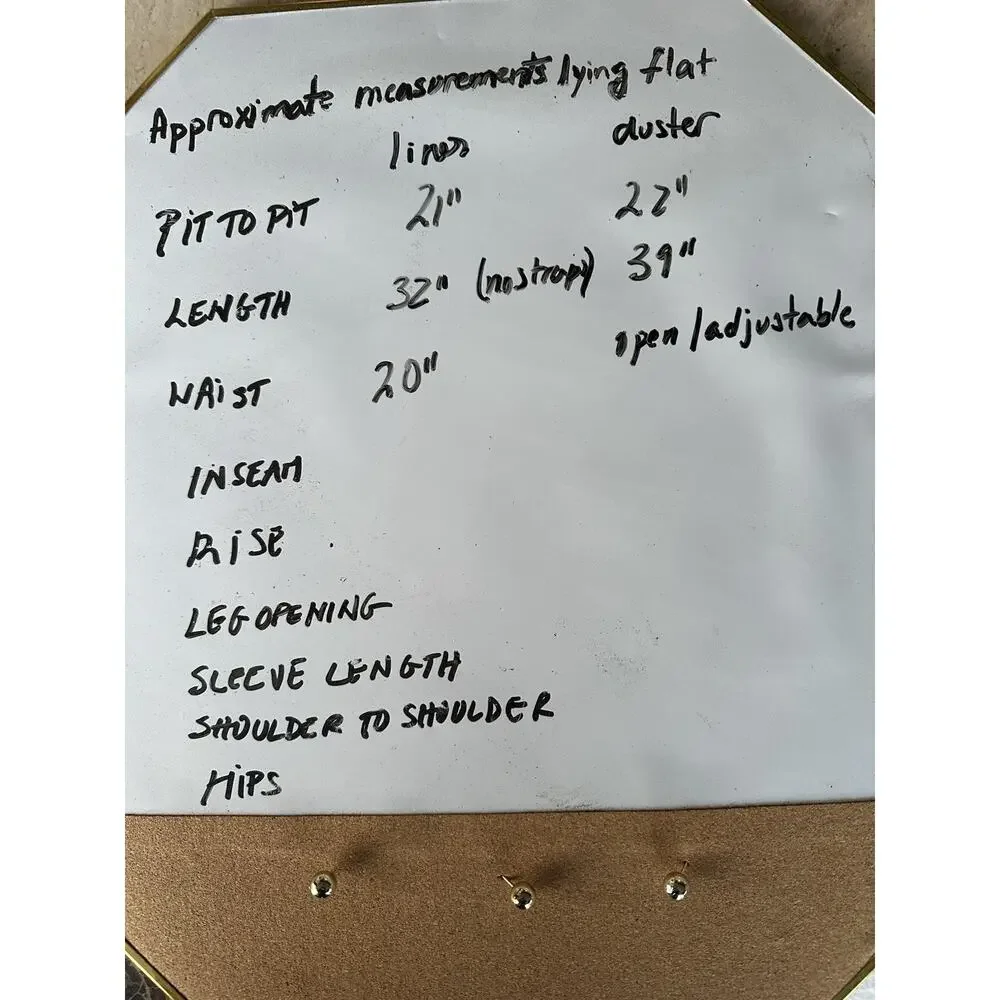 Approximate measurements lying flat
lines duster
PIT TO PIT 21" 22"
LENGTH 32" (no straps) 39"
WAIST 20" open/adjustable
INSEAM
RISE
LEG OPENING
SLEEVE LENGTH
SHOULDER TO SHOULDER
HIPS